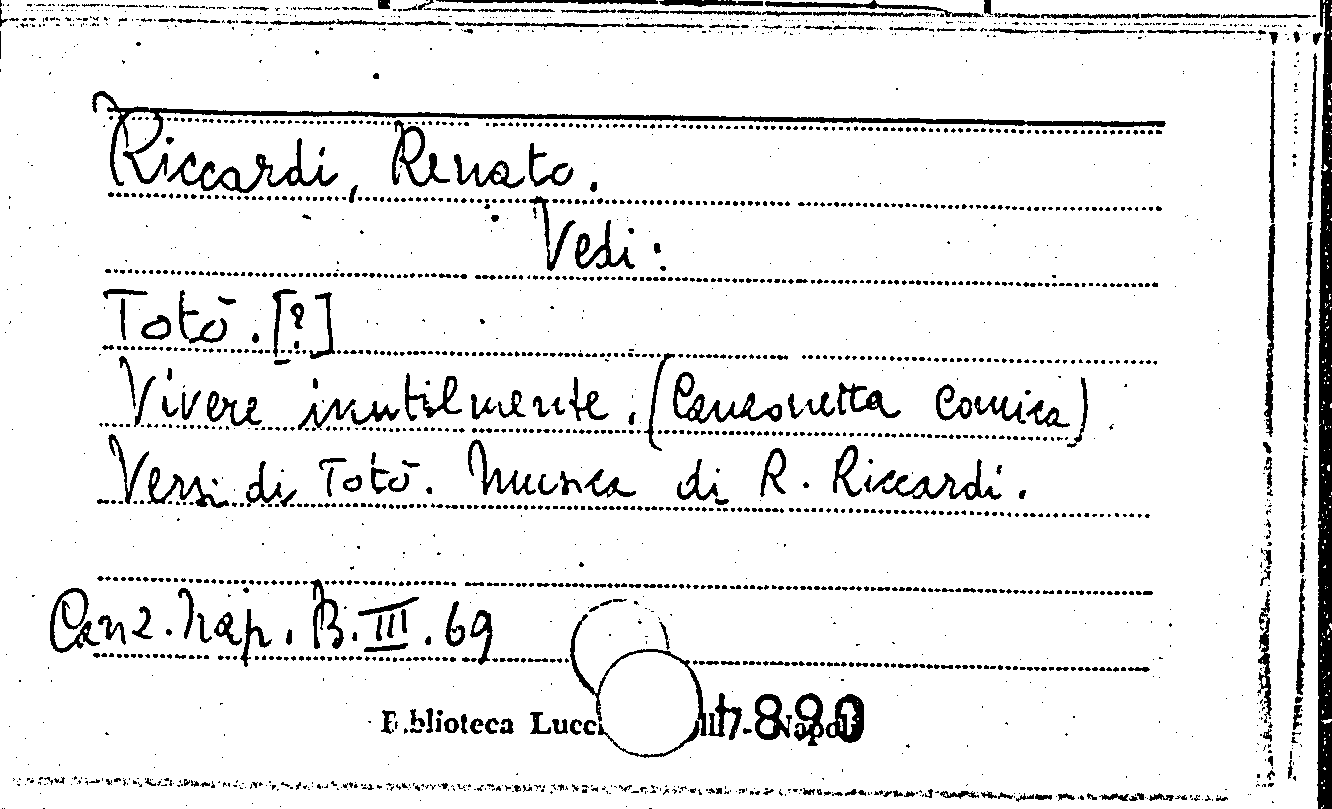 Riccardi, Renato.
Vedi:
Totò. [?]
Vivere inutilmente. (Canzonetta comica)
Versi di Totò. Musica di R. Riccardi.
Canz. Nap. B. III. 69
Biblioteca Lucc Napoli